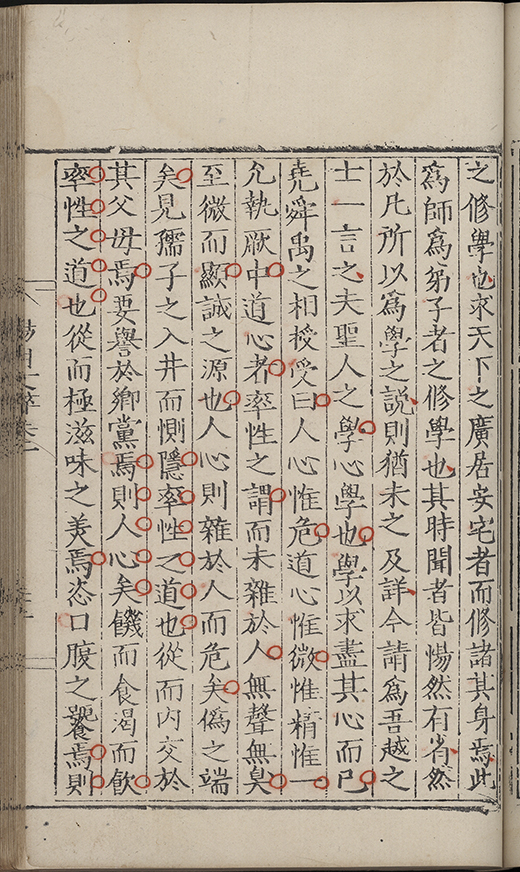 之修學也求天下之廣居安宅者而修諸其身焉此
爲師爲弟子者之修學也其時聞者皆惕然有省然
於凡所以爲學之說則猶未之及詳今請爲吾越之
士一言之夫聖人之學心學也學以求盡其心而已
堯舜禹之相授受曰人心惟危道心惟微惟精惟一
允執厥中道心者率性之謂而未雜於人無聲無臭
至微而顯誠之源也人心則雜於人而危矣僞之端
矣見孺子之入井而惻隱率性之道也從而內交於
其父母焉要譽於鄉黨焉則人心矣饑而食渴而飲
率性之道也從而極滋味之美焉恣口腹之饕焉則